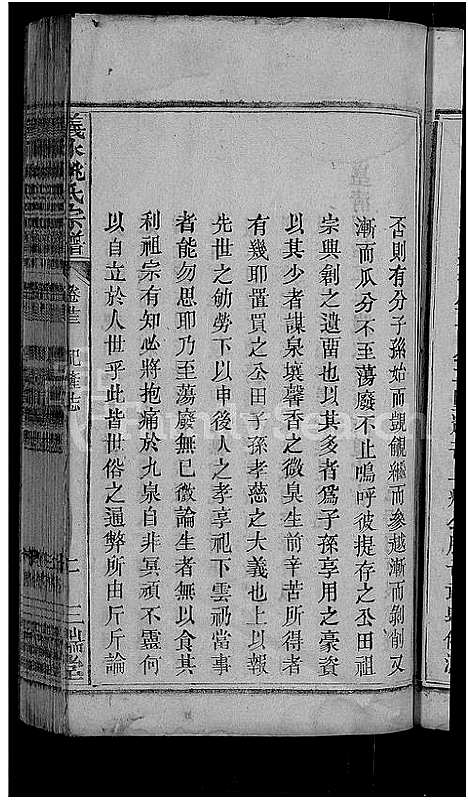 否則有分子孫始而覬覦繼而滲越漸而剝削又
漸而瓜分不至蕩廢不止嗚呼彼提存之公田祖
宗興創之遺畱也以其多者爲子孫享用之豪資
以其少者謀泉壤馨香之微臭生前辛苦所得者
有幾耶置買之公田子孫孝慈之大義也上以報
先世之劬勞下以申後人之孝享祀下雲礽當事
者能勿思耶乃至蕩廢無已微論生者無以食其
利祖宗有知必將抱痛於九泉自非冥頑不靈何
以自立於人世乎此皆世俗之通弊所由斤斤論
義水姚氏宗譜
卷苐 祀產志
三瑞堂